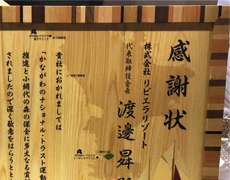 感謝状
株式会社 リビエラリゾート
代表取締役会長
渡邊昇
貴社におかれましては
「かながわのナショナル・トラスト運動
推進と小網代の森の保全に多大なる貢
ましたので深く敬意をはらうもと